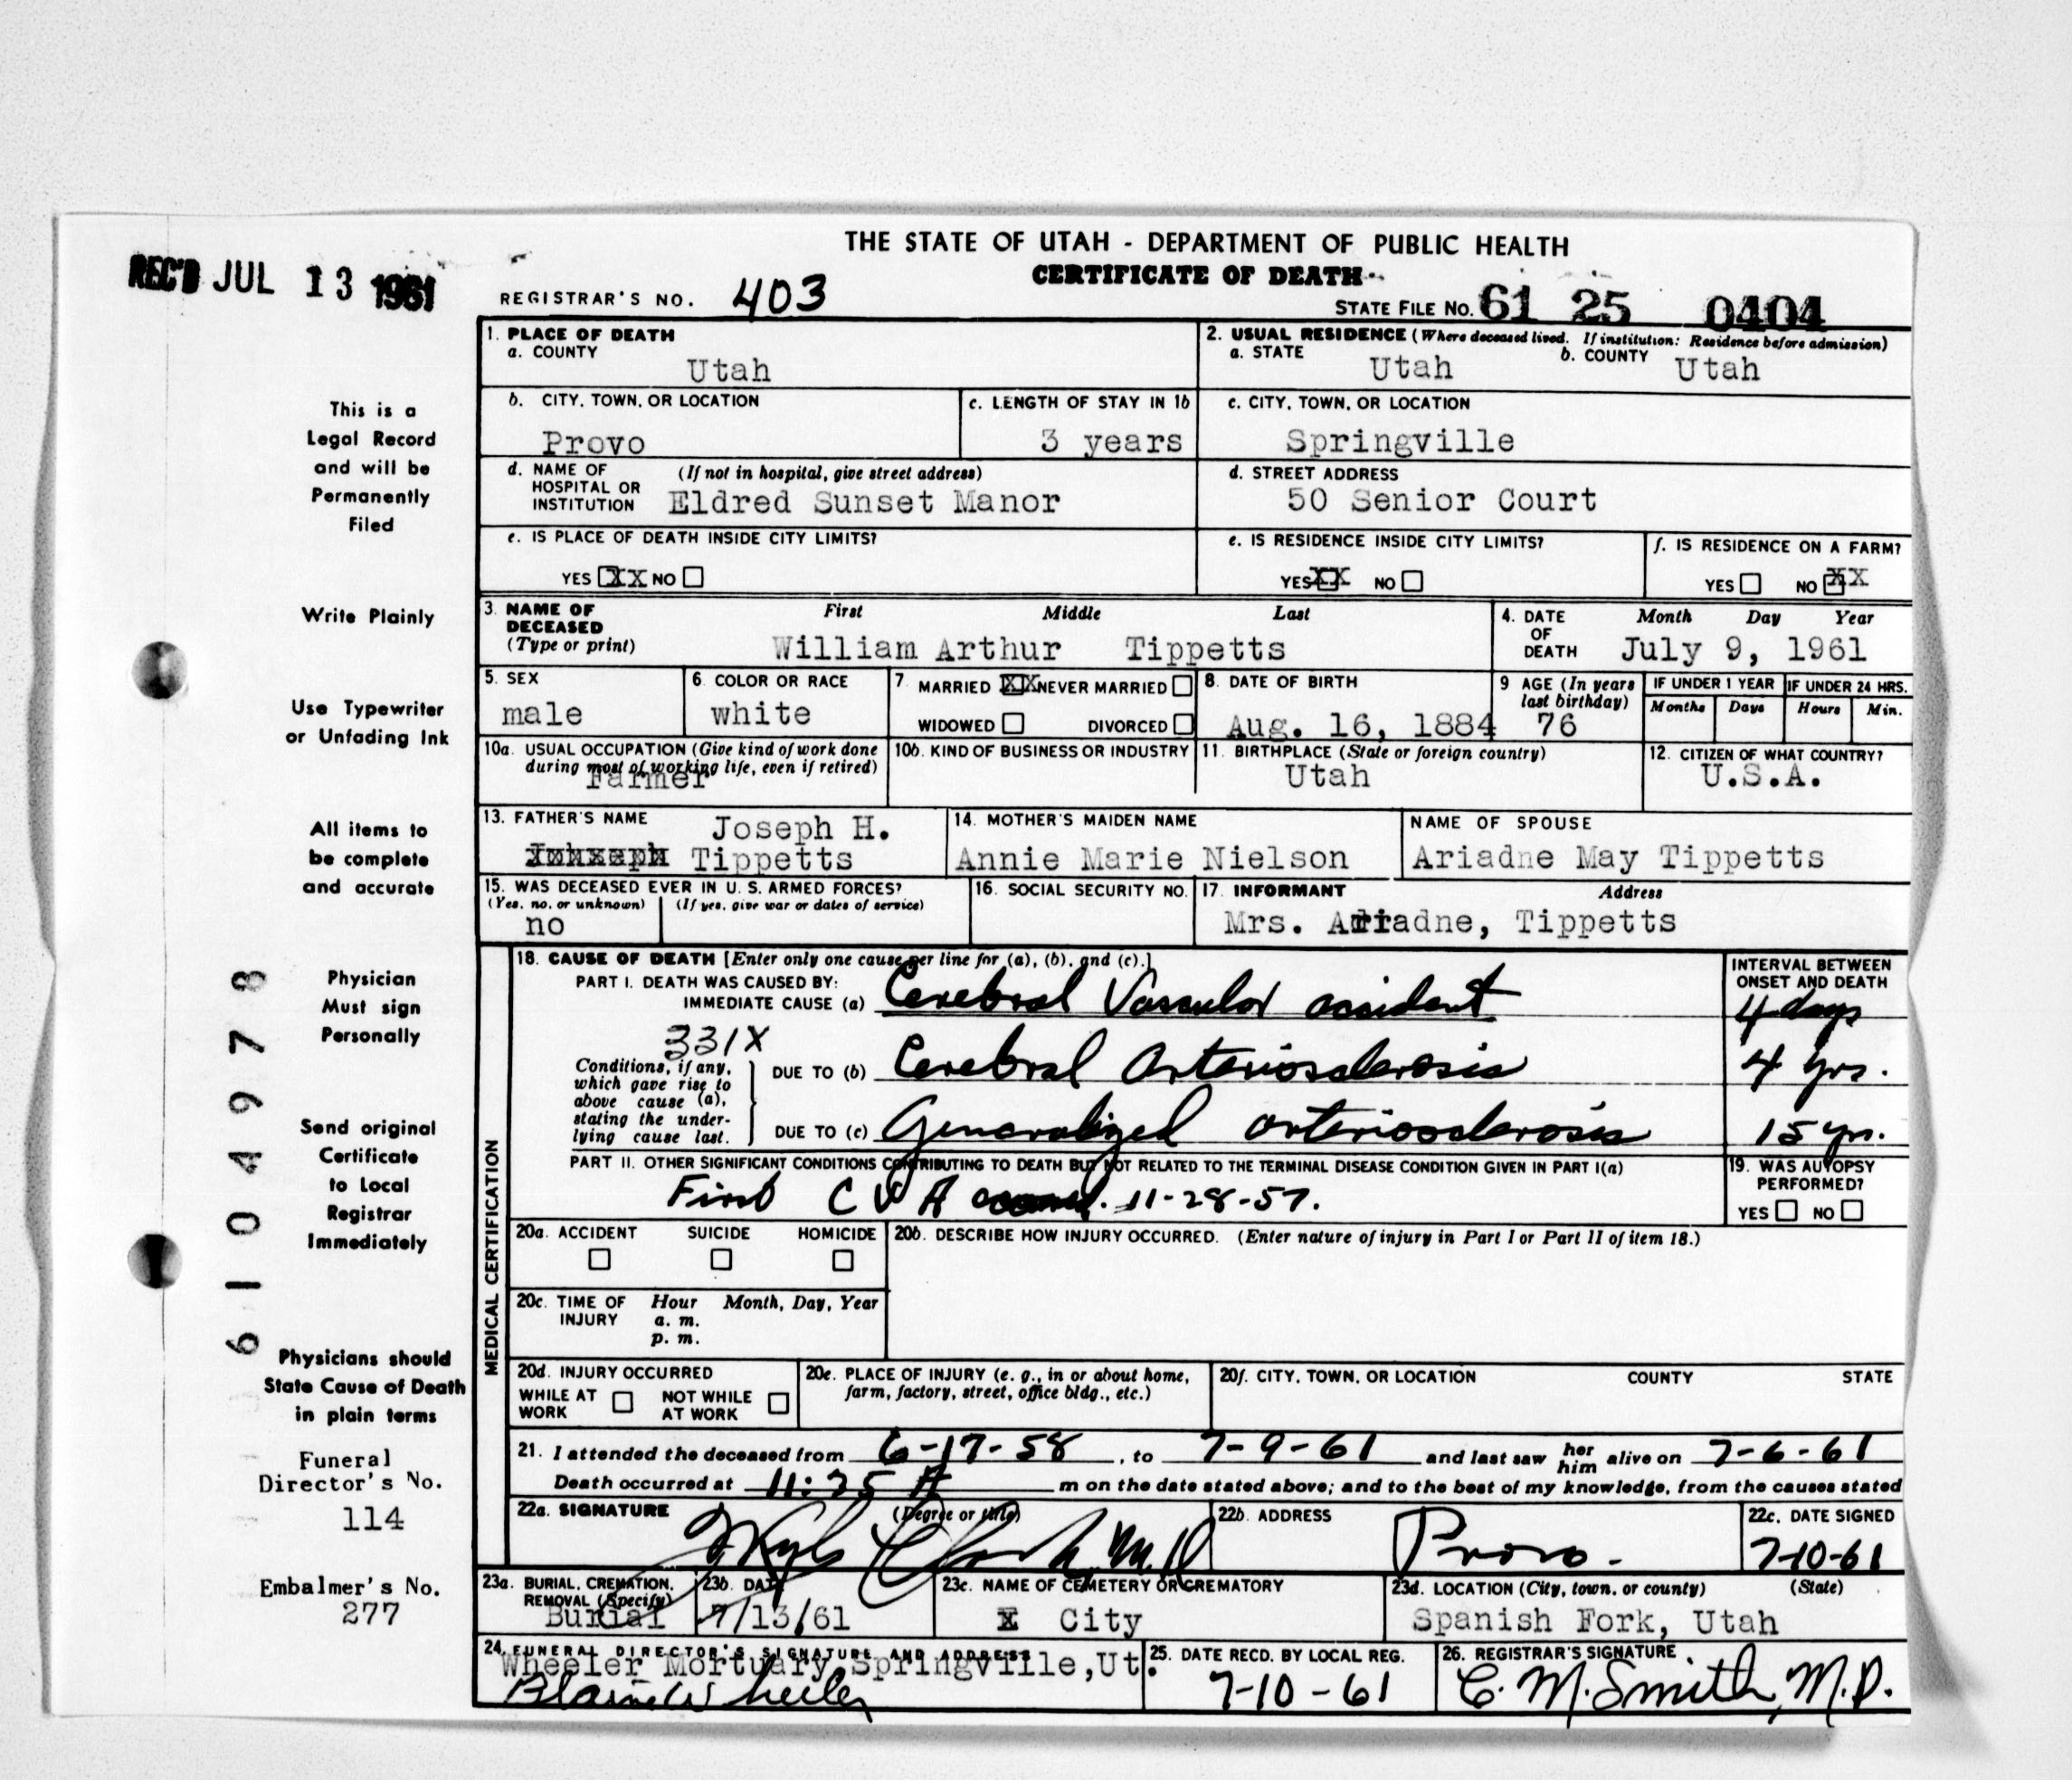 THE STATE OF UTAH - DEPARTMENT OF PUBLIC HEALTH
CERTIFICATE OF DEATH
REC'D JUL 13 1961
REGISTRAR'S NO. 403
STATE FILE NO. 61 25 0404
1. PLACE OF DEATH
a. COUNTY
Utah
2. USUAL RESIDENCE (Where deceased lived. If institution: Residence before admission)
a. STATE Utah b. COUNTY Utah
b. CITY, TOWN, OR LOCATION
Provo
c. LENGTH OF STAY IN 1b
3 years
c. CITY, TOWN, OR LOCATION
Springville
d. NAME OF HOSPITAL OR INSTITUTION (If not in hospital, give street address)
Eldred Sunset Manor
d. STREET ADDRESS
50 Senior Court
e. IS PLACE OF DEATH INSIDE CITY LIMITS?
YES XX NO
e. IS RESIDENCE INSIDE CITY LIMITS?
YES XX NO
f. IS RESIDENCE ON A FARM?
YES NO XX
3. NAME OF DECEASED (Type or print)
First Middle Last
William Arthur Tippetts
4. DATE OF DEATH
Month Day Year
July 9, 1961
5. SEX
male
6. COLOR OR RACE
white
7. MARRIED XX NEVER MARRIED
WIDOWED DIVORCED
8. DATE OF BIRTH
Aug. 16, 1884
9 AGE (In years last birthday)
76
IF UNDER 1 YEAR
Months Days
IF UNDER 24 HRS.
Hours Min.
10a. USUAL OCCUPATION (Give kind of work done during most of working life, even if retired)
Farmer
10b. KIND OF BUSINESS OR INDUSTRY
11. BIRTHPLACE (State or foreign country)
Utah
12. CITIZEN OF WHAT COUNTRY?
U.S.A.
13. FATHER'S NAME
Joseph H.
Tippetts
14. MOTHER'S MAIDEN NAME
Annie Marie Nielson
NAME OF SPOUSE
Ariadne May Tippetts
15. WAS DECEASED EVER IN U. S. ARMED FORCES?
(Yes, no, or unknown) (If yes, give war or dates of service)
no
16. SOCIAL SECURITY NO.
17. INFORMANT Address
Mrs. Ariadne, Tippetts
MEDICAL CERTIFICATION
18. CAUSE OF DEATH [Enter only one cause per line for (a), (b), and (c).]
PART I. DEATH WAS CAUSED BY:
IMMEDIATE CAUSE (a) Cerebral Vascular accident
331X
Conditions, if any, which gave rise to above cause (a), stating the underlying cause last.
DUE TO (b) Cerebral Arteriosclerosis
DUE TO (c) Generalized arteriosclerosis
INTERVAL BETWEEN ONSET AND DEATH
4 days
4 yrs.
15 yrs.
PART II. OTHER SIGNIFICANT CONDITIONS CONTRIBUTING TO DEATH BUT NOT RELATED TO THE TERMINAL DISEASE CONDITION GIVEN IN PART I(a)
First C V A 11-28-57.
19. WAS AUTOPSY PERFORMED?
YES NO
20a. ACCIDENT SUICIDE HOMICIDE
20b. DESCRIBE HOW INJURY OCCURRED. (Enter nature of injury in Part I or Part II of item 18.)
20c. TIME OF INJURY Hour Month, Day, Year
a. m.
p. m.
20d. INJURY OCCURRED
WHILE AT WORK NOT WHILE AT WORK
20e. PLACE OF INJURY (e. g., in or about home, farm, factory, street, office bldg., etc.)
20f. CITY, TOWN, OR LOCATION COUNTY STATE
21. I attended the deceased from 6-17-58, to 7-9-61 and last saw her him alive on 7-6-61
Death occurred at 11:35 A m on the date stated above; and to the best of my knowledge, from the causes stated
22a. SIGNATURE (Degree or title)
Clark M.D
22b. ADDRESS
Provo.
22c. DATE SIGNED
7-10-61
23a. BURIAL, CREMATION, REMOVAL (Specify)
Burial
23b. DATE
7/13/61
23c. NAME OF CEMETERY OR CREMATORY
X City
23d. LOCATION (City, town, or county) (State)
Spanish Fork, Utah
24. FUNERAL DIRECTOR'S SIGNATURE AND ADDRESS
Wheeler Mortuary Springville, Ut.
Blaine W Wheeler
25. DATE RECD. BY LOCAL REG.
7-10-61
26. REGISTRAR'S SIGNATURE
C. M. Smith, M.D.
This is a
Legal Record
and will be
Permanently
Filed
Write Plainly
Use Typewriter
or Unfading Ink
All items to
be complete
and accurate
Physician
Must sign
Personally
Send original
Certificate
to Local
Registrar
Immediately
Physicians should
State Cause of Death
in plain terms
Funeral
Director's No.
114
Embalmer's No.
277
6104978